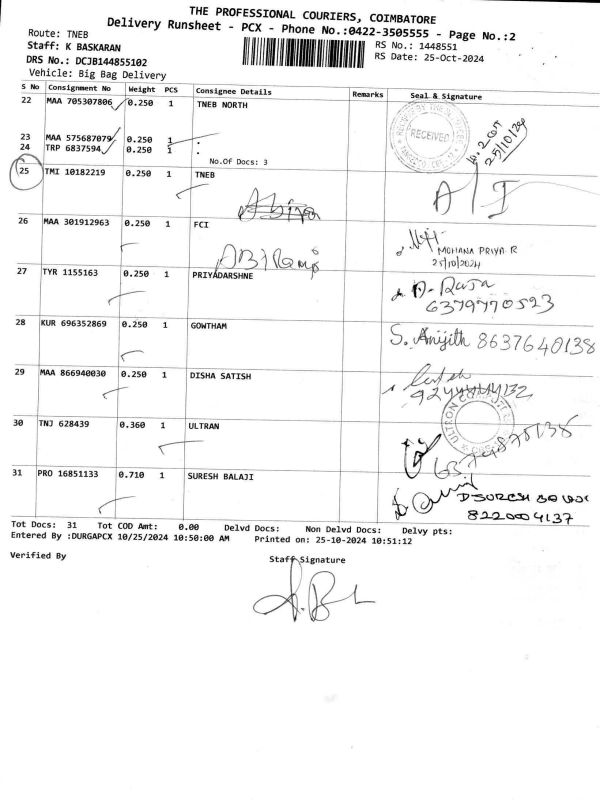 THE PROFESSIONAL COURIERS, COIMBATORE
Delivery Runsheet - PCX - Phone No.:0422-3505555 - Page No.:2
Route: TNEB
Staff: K BASKARAN
RS No.: 1448551
DRS No.: DCJB144855102
RS Date: 25-Oct-2024
Vehicle: Big Bag Delivery
S No Consignment No Weight PCS Consignee Details Remarks Seal & Signature
22 MAA 705307806 0.250 1 TNEB NORTH
RECEIVED
25/10/24
23 MAA 575687079 0.250 1 .
24 TRP 6837594 0.250 1 .
No.Of Docs: 3
25 TMI 10182219 0.250 1 TNEB
26 MAA 301912963 0.250 1 FCI
MOHANA PRIYA R
25/10/2024
27 TYR 1155163 0.250 1 PRIYADARSHNE
D. Raja
6379770523
28 KUR 696352869 0.250 1 GOWTHAM
S. Anijith 8637640138
29 MAA 866940030 0.250 1 DISHA SATISH
30 TNJ 628439 0.360 1 ULTRAN
31 PRO 16851133 0.710 1 SURESH BALAJI
D SURESH BALAJI
8220004137
Tot Docs: 31 Tot COD Amt: 0.00 Delvd Docs: Non Delvd Docs: Delvy pts:
Entered By :DURGAPCX 10/25/2024 10:50:00 AM Printed on: 25-10-2024 10:51:12
Verified By Staff Signature